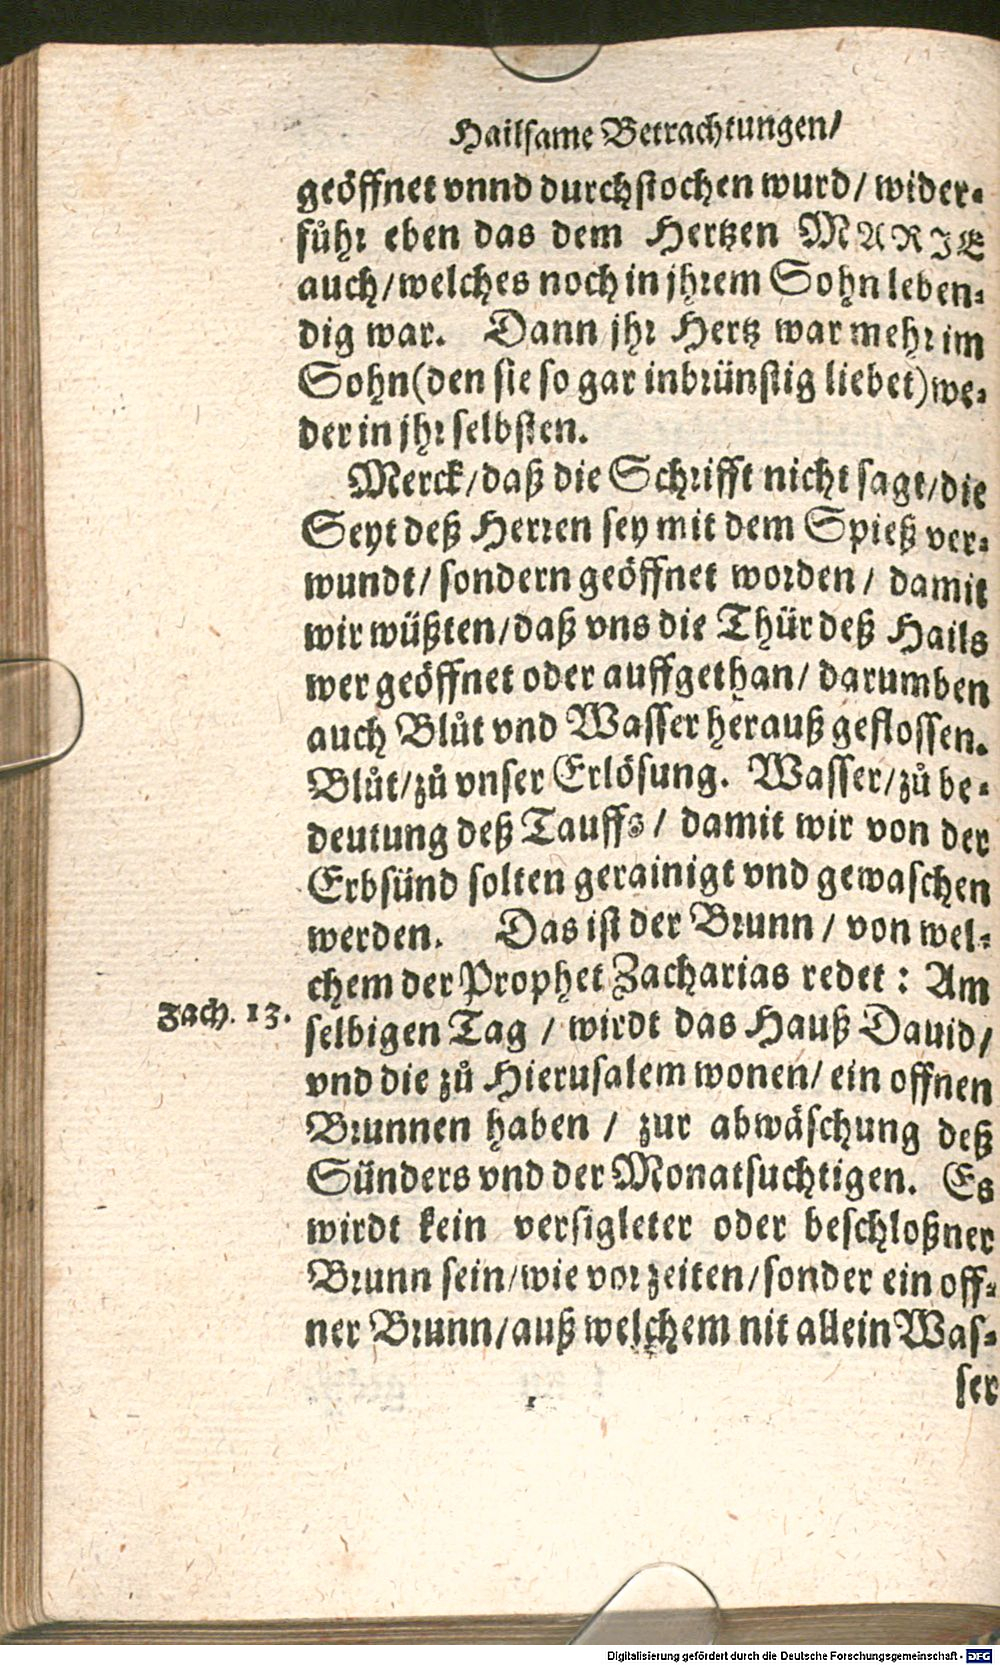 Hailsame Betrachtungen/
geöffnet vnnd durchstochen wurd/ wider-
fůhr eben das dem Hertzen MARIE
auch/welches noch in jhrem Sohn leben-
dig war. Dann jhr Hertz war mehr im
Sohn(den sie so gar inbrünstig liebet)we-
der in jhr selbsten.
Merck/daß die Schrifft nicht sagt/die
Seyt deß Herren sey mit dem Spieß ver-
wundt/ sondern geöffnet worden/ damit
wir wüßten/daß vns die Thür deß Hails
wer geöffnet oder auffgethan/ darumben
auch Blůt vnd Wasser herauß geflossen.
Blůt/zů vnser Erlösung. Wasser/zů be-
deutung deß Tauffs/ damit wir von der
Erbsünd solten gerainigt vnd gewaschen
werden. Das ist der Brunn/ von wel-
chem der Prophet Zacharias redet: Am
Zach. 13.
selbigen Tag/ wirdt das Hauß Dauid/
vnd die zů Hierusalem wonen/ ein offnen
Brunnen haben/ zur abwäschung deß
Sünders vnd der Monatsuchtigen. Es
wirdt kein versigleter oder beschloßner
Brunn sein/wie vor zeiten/sonder ein off-
ner Brunn/auß welchem nit allein Was-
ser
Digitalisierung gefördert durch die Deutsche Forschungsgemeinschaft - DFG